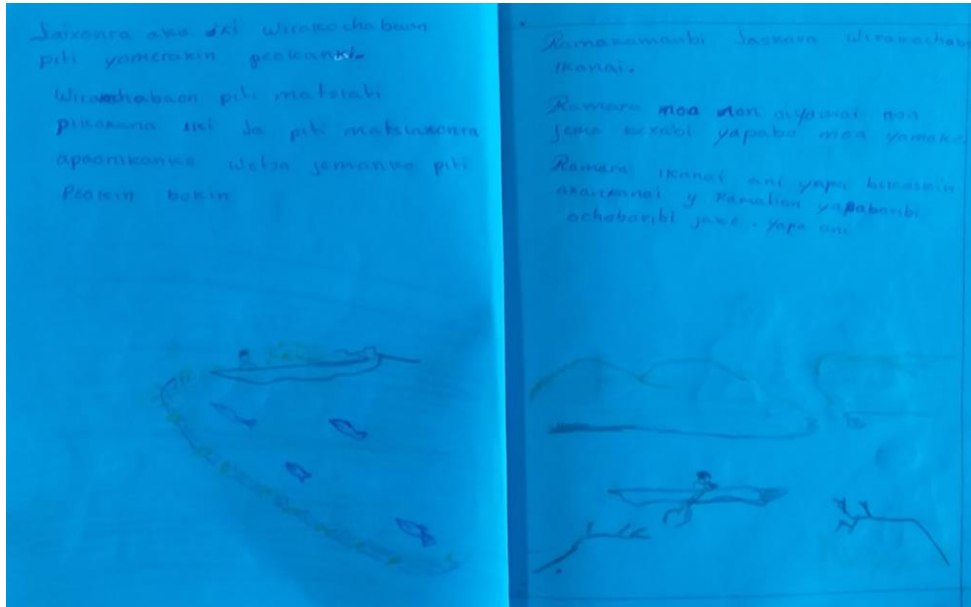 Jaixonra aka iki wirakochabaon
piti yomerakin peokanki
Wirakochabaon piti matsiati
pikokana iki Ja piti matsinxonra
apaonikanke wetsa jemanko piti
Peokin bokin
Ramakamanbi Jaskara wirakochabo
ikanai.
Ramara moa non oiyamai noa
jema kexabi yapabo moa yamake.
Ramara ikanai ani yapa
akankanai y Ramatian yapabaribi
ochobaribi jake. yapa ani